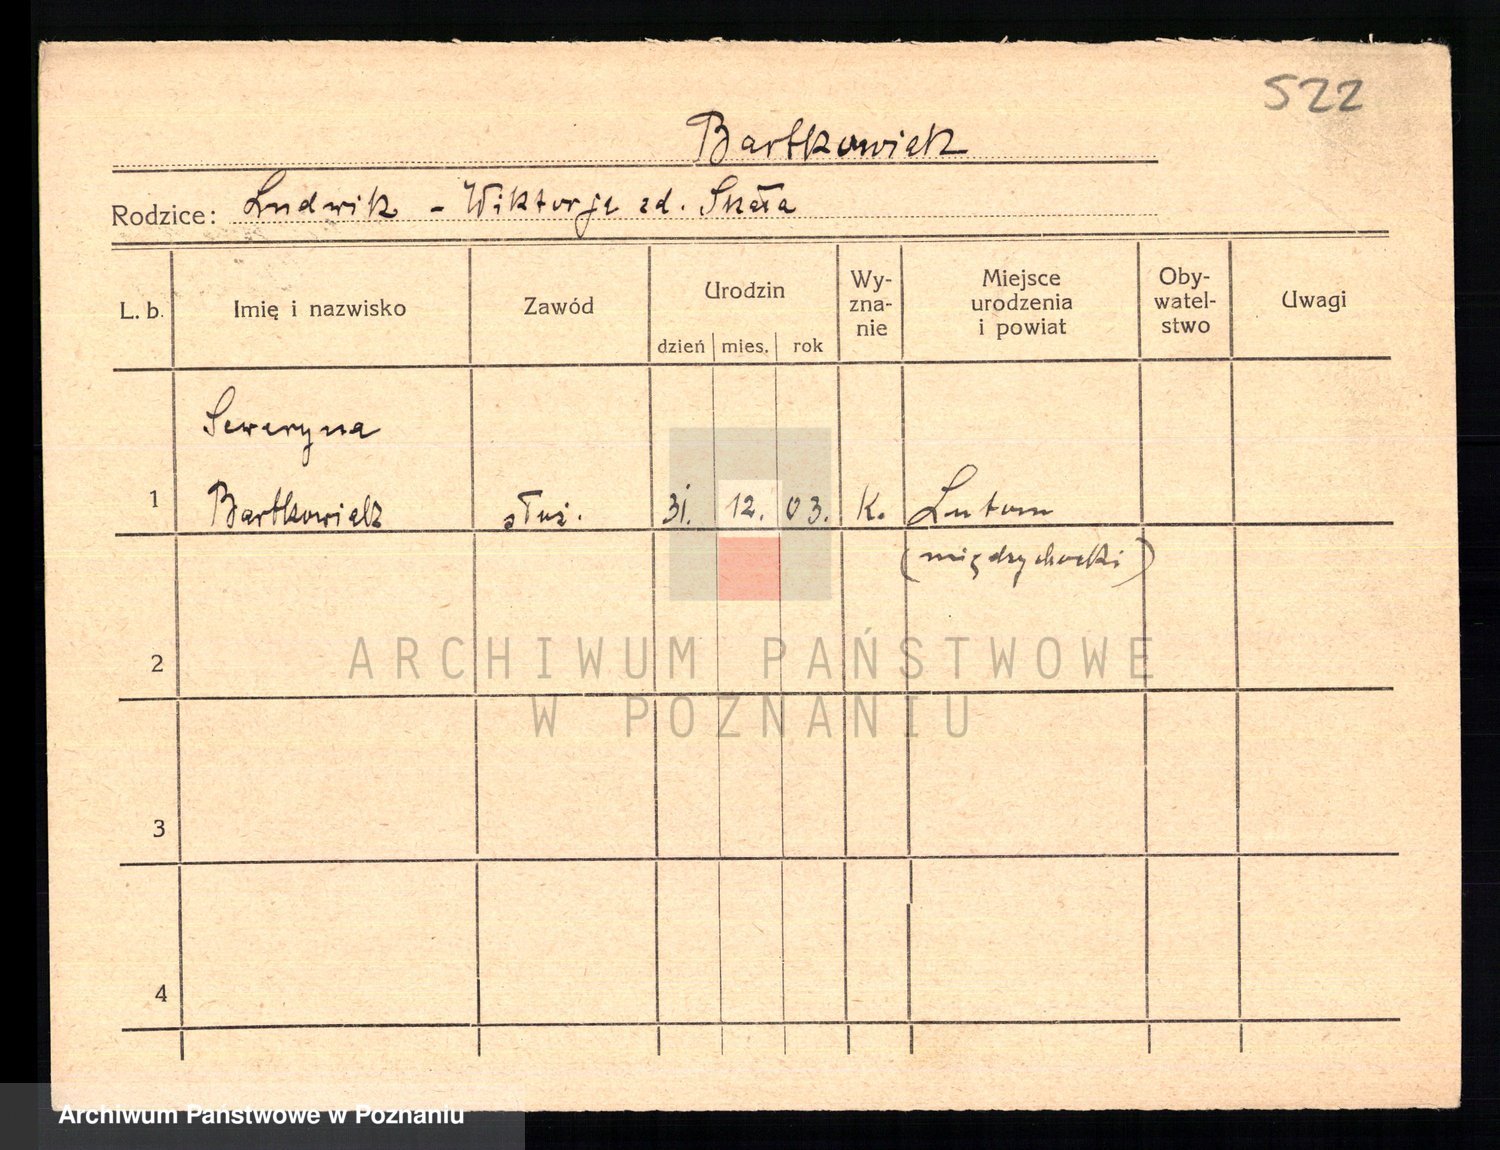 522
Bartkowiak
Rodzice: Ludwik - Wiktorja zd. Skała
L. b.
Imię i nazwisko
Zawód
Urodzin
dzień mies. rok
Wy-
zna-
nie
Miejsce
urodzenia
i powiat
Oby-
watel-
stwo
Uwagi
Seweryna
1 Bartkowiak służ. 31. 12. 03. K. Lutom
(międzychocki)
2
ARCHIWUM PAŃSTWOWE
W POZNANIU
3
4
Archiwum Państwowe w Poznaniu